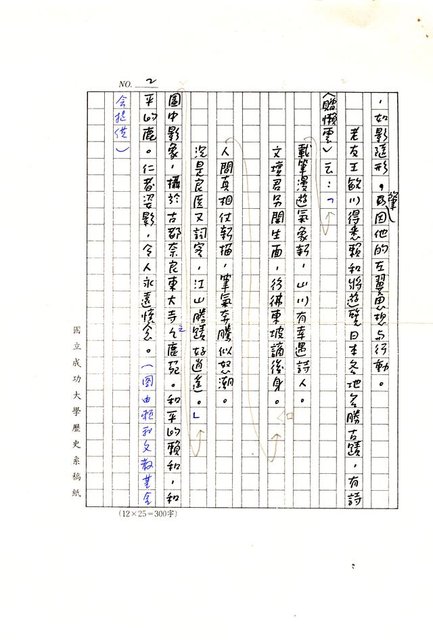 NO. 2
，如影隨形，肇因他的左翼思想与行動。
老友王敏川得悉賴和將遊覽日本各地名勝古蹟，有詩
〈贈懶雲〉云：「
載筆漫遊氣象新，山川有幸遇詩人。
文壇君另開生面，彷彿東坡謫後身。
人間真相仗新描，筆氣奔騰似怒潮。
況是良医又詞客，江山勝蹟好逍遙。」
圖中影象，攝於古都奈良東大寺之鹿苑。和平的賴和，和
平的鹿。仁者姿影，令人永遠懷念。（圖由賴和文教基金
会提供）
國立成功大學歷史系稿紙
(12×25=300字)